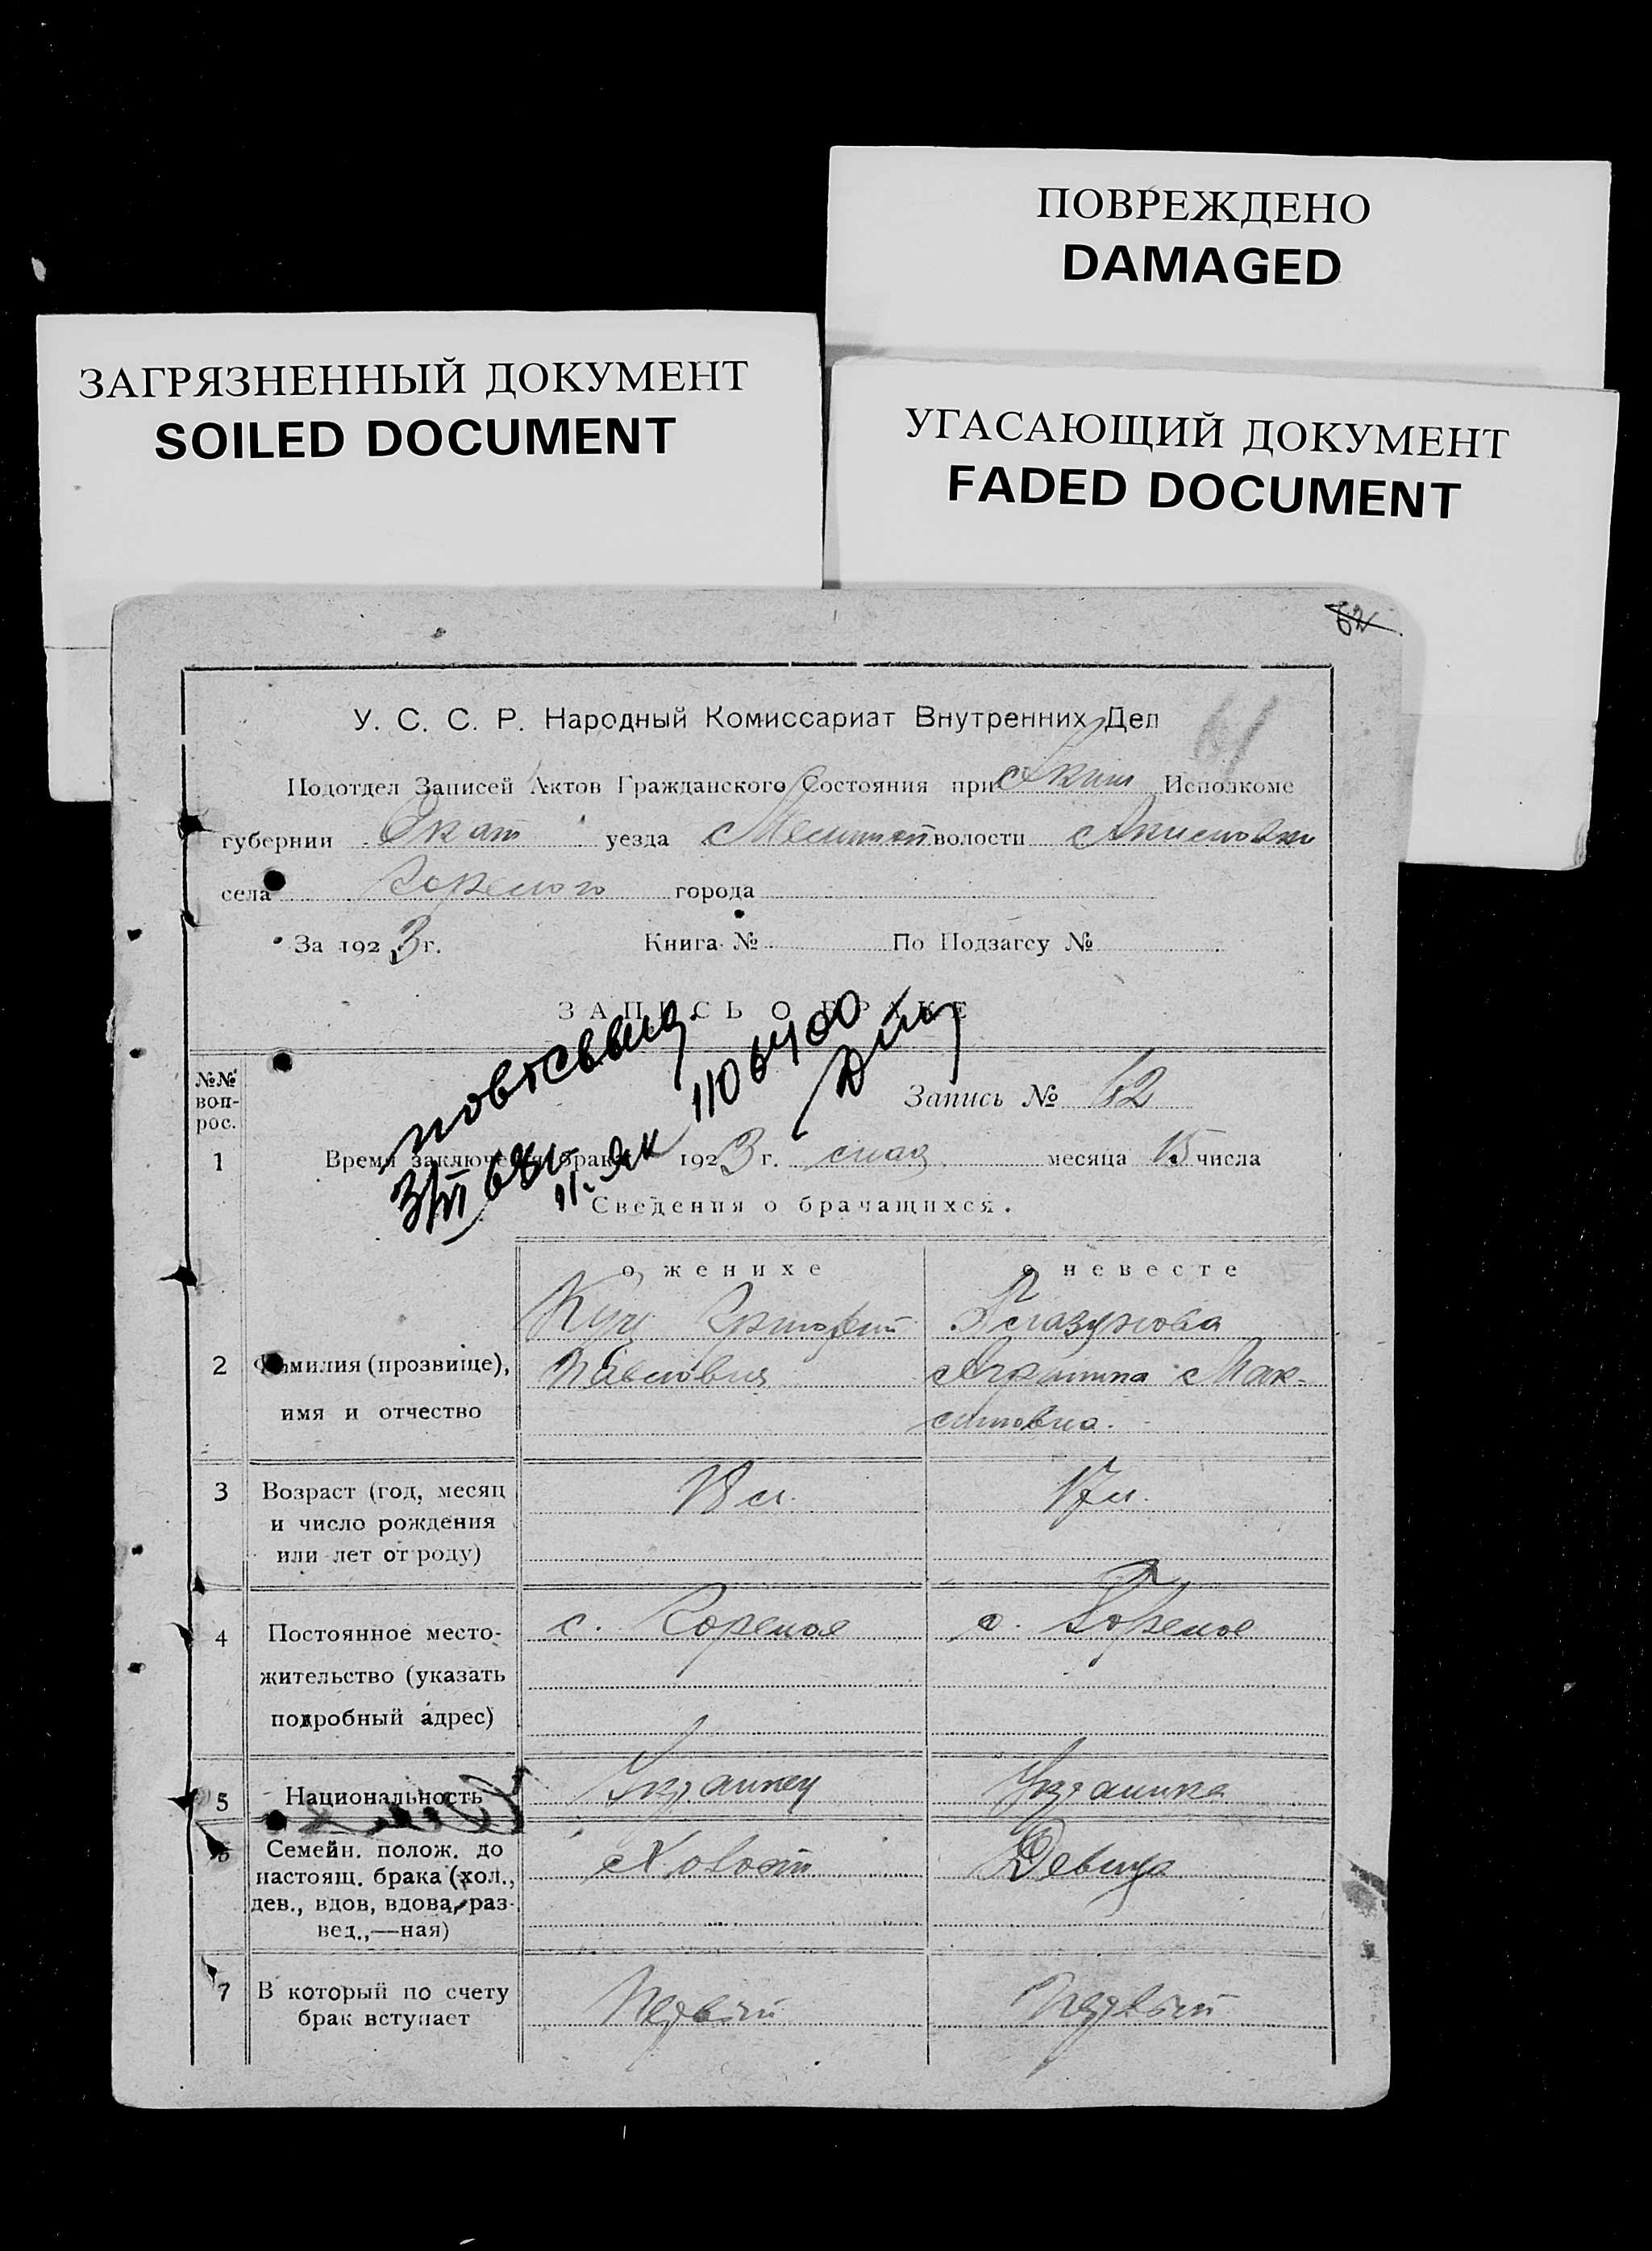 ПОВРЕЖДЕНО
DAMAGED
ЗАГРЯЗНЕННЫЙ ДОКУМЕНТ
SOILED DOCUMENT
УГАСАЮЩИЙ ДОКУМЕНТ
FADED DOCUMENT
62
61
У. С. С. Р. Народный Комиссариат Внутренних Дел
Подотдел Записей Актов Гражданского Состояния при Исполкоме
губернии Екат уезда волости
села города
За 1923 г. Книга № По Подзагсу №
ЗАПИСЬ О БРАКЕ
№№ воп-рос.
Запись № 62
1 Время заключения брака 1923 г. мая месяца 15 числа
Сведения о брачащихся.
о женихе о невесте
Куц Григорий Глазунова
2 Фамилия (прозвище), Павлович Мак-
имя и отчество симовна.
3 Возраст (год, месяц 18 л. 17 л.
и число рождения
или лет от роду)
4 Постоянное место- с. Горелое с. Горелое
жительство (указать
подробный адрес)
5 Национальность Украинец Украинка
6 Семейн. полож. до Холост Девица
настоящ. брака (хол.,
дев., вдов, вдова, раз-
вед.,—ная)
7 В который по счету Первый Первый
брак вступает